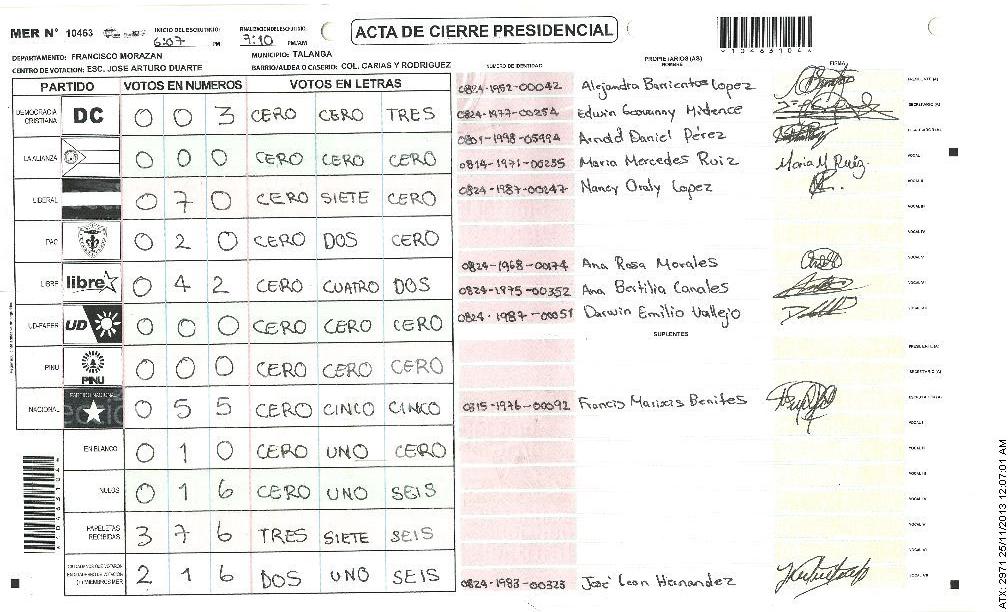 MER N° 10463
INICIO DEL ESCRUTINIO: 6:07 PM
FINALIZACION DEL ESCRUTINIO: 7:10 PM/AM
ACTA DE CIERRE PRESIDENCIAL
DEPARTAMENTO: FRANCISCO MORAZAN
MUNICIPIO: TALANGA
CENTRO DE VOTACION: ESC. JOSE ARTURO DUARTE
BARRIO/ALDEA O CASERIO: COL. CARIAS Y RODRIGUEZ
PARTIDO VOTOS EN NUMEROS VOTOS EN LETRAS
DEMOCRACIA CRISTIANA DC 0 0 3 CERO CERO TRES
LA ALIANZA 0 0 0 CERO CERO CERO
LIBERAL 0 7 0 CERO SIETE CERO
PAC 0 2 0 CERO DOS CERO
LIBRE libre 0 4 2 CERO CUATRO DOS
UD-FAPER UD 0 0 0 CERO CERO CERO
PINU PINU 0 0 0 CERO CERO CERO
NACIONAL PARTIDO NACIONAL 0 5 5 CERO CINCO CINCO
EN BLANCO 0 1 0 CERO UNO CERO
NULOS 0 1 6 CERO UNO SEIS
PAPELETAS RECIBIDAS 3 7 6 TRES SIETE SEIS
CIUDADANOS QUE VOTARON EN CUADERNO DE VOTACION (+) MIEMBROS MER 2 1 6 DOS UNO SEIS
NUMERO DE IDENTIDAD PROPIETARIOS (AS) NOMBRE FIRMA
0824-1952-00042 Alejandra Barrientos Lopez PRESIDENTE (A)
0824-1977-00254 Edwin Geovanny Midence SECRETARIO (A)
0801-1998-05994 Arnold Daniel Pérez ESCRUTADOR (A)
0814-1971-00255 Maria Mercedes Ruiz Maria M Ruiz. VOCAL I
0824-1987-00247 Nancy Oraly Lopez VOCAL II
VOCAL III
VOCAL IV
0824-1968-00174 Ana Rosa Morales VOCAL V
0824-1975-00352 Ana Bertilia Canales VOCAL VI
0824-1987-00051 Darwin Emilio Vallejo VOCAL VII
SUPLENTES
PRESIDENTE (A)
SECRETARIO (A)
0815-1976-00092 Francis Marixis Benites ESCRUTADOR (A)
VOCAL I
VOCAL II
VOCAL III
VOCAL IV
VOCAL V
VOCAL VI
0824-1983-00323 José Leon Hernandez VOCAL VII
ATX: 2971 25/11/2013 12:07:01 AM